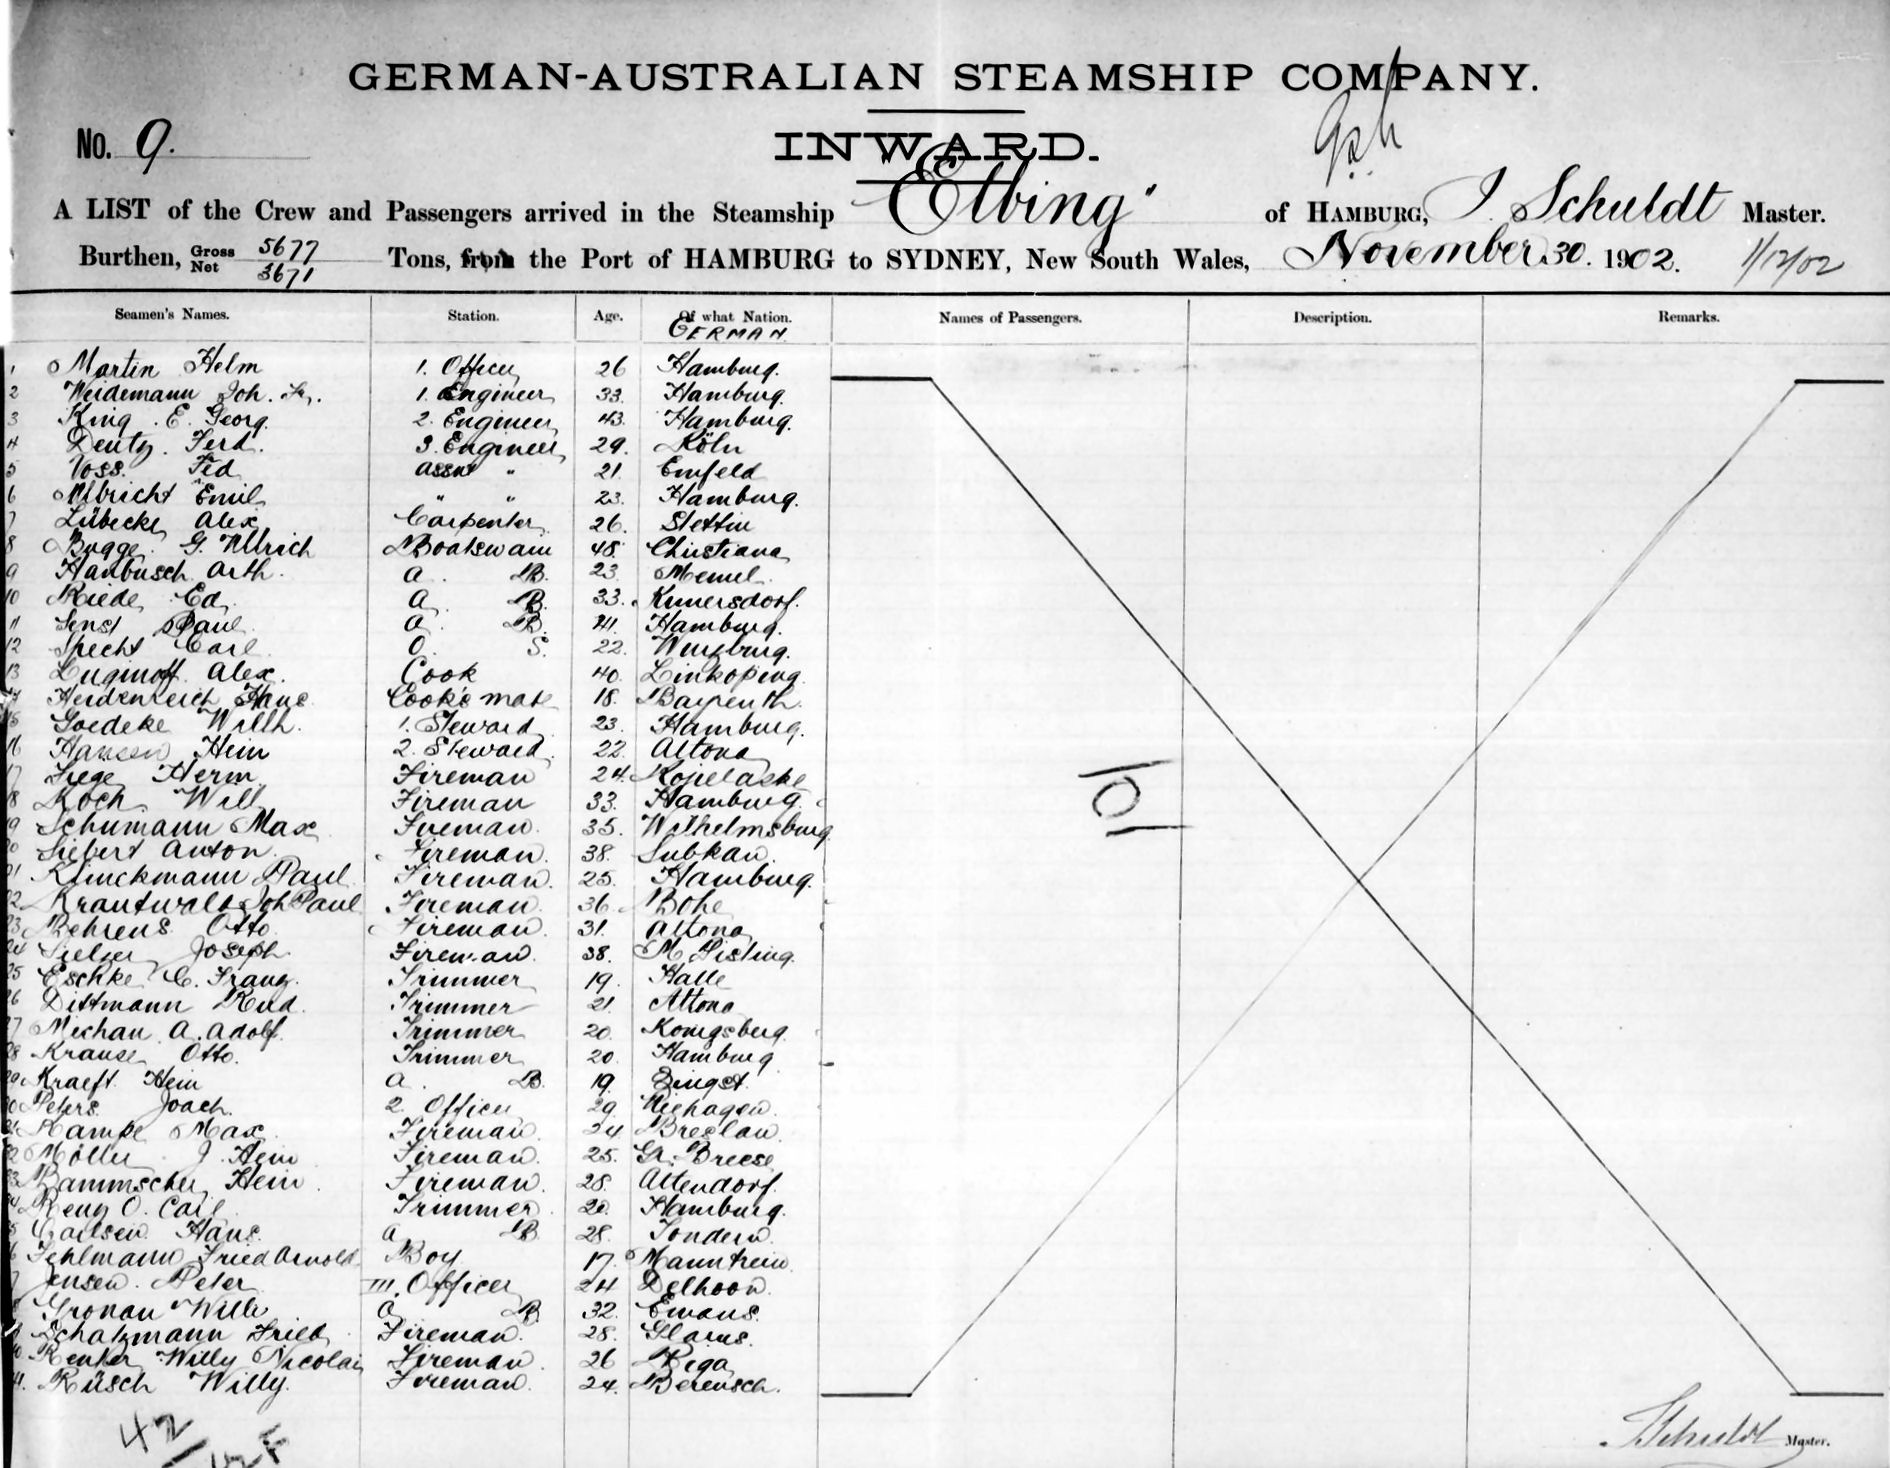 GERMAN-AUSTRALIAN STEAMSHIP COMPANY.
No. 9.
INWARD.
A LIST of the Crew and Passengers arrived in the Steamship "Elbing" of HAMBURG, J. Schuldt Master.
Burthen, Gross 5677 Net 3671 Tons, from the Port of HAMBURG to SYDNEY, New South Wales, November 30. 1902. 1/12/02
Seamen's Names. Station. Age. Of what Nation. Names of Passengers. Description. Remarks.
GERMAN
1 Martin Helm 1. Officer 26 Hamburg.
2 Weidemann Joh. Fr. 1. Engineer 33. Hamburg.
3 King E. Georg. 2. Engineer 43. Hamburg.
4 Deutz Ferd. 3. Engineer 29. Köln
5 Voss. Fed assnt " 21. Emfeld
6 Albricht Emil " " 23. Hamburg.
7 Lübecke Alex Carpenter 26. Stettin
8 Bugge G. Ullrich Boatswain 48. Christiana
9 Hanbusch Arth. A. B. 23. Memel.
10 Riede Ed. A. B. 33. Kunersdorf.
11 Senst Paul A. B. 21. Hamburg.
12 Specht Carl O. S. 22. Wurzburg.
13 Luginoff Alex. Cook 40. Linkoping.
14 Heidenreich Hans Cook's mate 18. Bayreuth.
15 Goedeke Willh. 1. Steward 23. Hamburg.
16 Hansen Hein 2. Steward 22. Altona
17 Fiege Herm Fireman 24. Kopelaske
18 Koch Will Fireman 33. Hamburg.
19 Schumann Max Fireman. 35. Wilhelmsburg
20 Siebert Anton. Fireman. 38. Subkau.
21 Klinckmann Paul Fireman. 25. Hamburg.
22 Krautwald Joh Paul Fireman. 36. Bohe
23 Behrens Otto. Fireman. 31. Altona
24 Joseph. Fireman. 38. M. Gisting.
25 Eschke C. Franz. Trimmer 19. Halle
26 Dittmann Rud. Trimmer 21. Altona
27 Michan A. Adolf. Trimmer 20. Konigsberg.
28 Krause Otto. Trimmer 20. Hamburg
29 Kraeft Hein A. B. 19. Zingst.
30 Peters Joach. 2. Officer 29. Niehagen.
31 Kampe Max Fireman. 24 Breslau.
32 Möller J. Hein Fireman. 25. Gr. Breese
33 Bammscher Hein Fireman. 28. Altendorf.
34 Benz O. Carl Trimmer 20. Hamburg.
35 Carlsen Hans. A B. 28. Tondern.
36 Fehlmann Fried Arnold Boy 17. Mannheim.
37 Jensen. Peter III. Officer 24 Delhoon.
38 Gronau Willi A B. 32. Emans.
39 Schatzmann Fried. Fireman. 28. Glarus.
40 Renker Willy Nicolai Fireman. 26 Riga
41. Rüsch Willy. Fireman. 24. Berensch.
101
42
Schuldt Master.